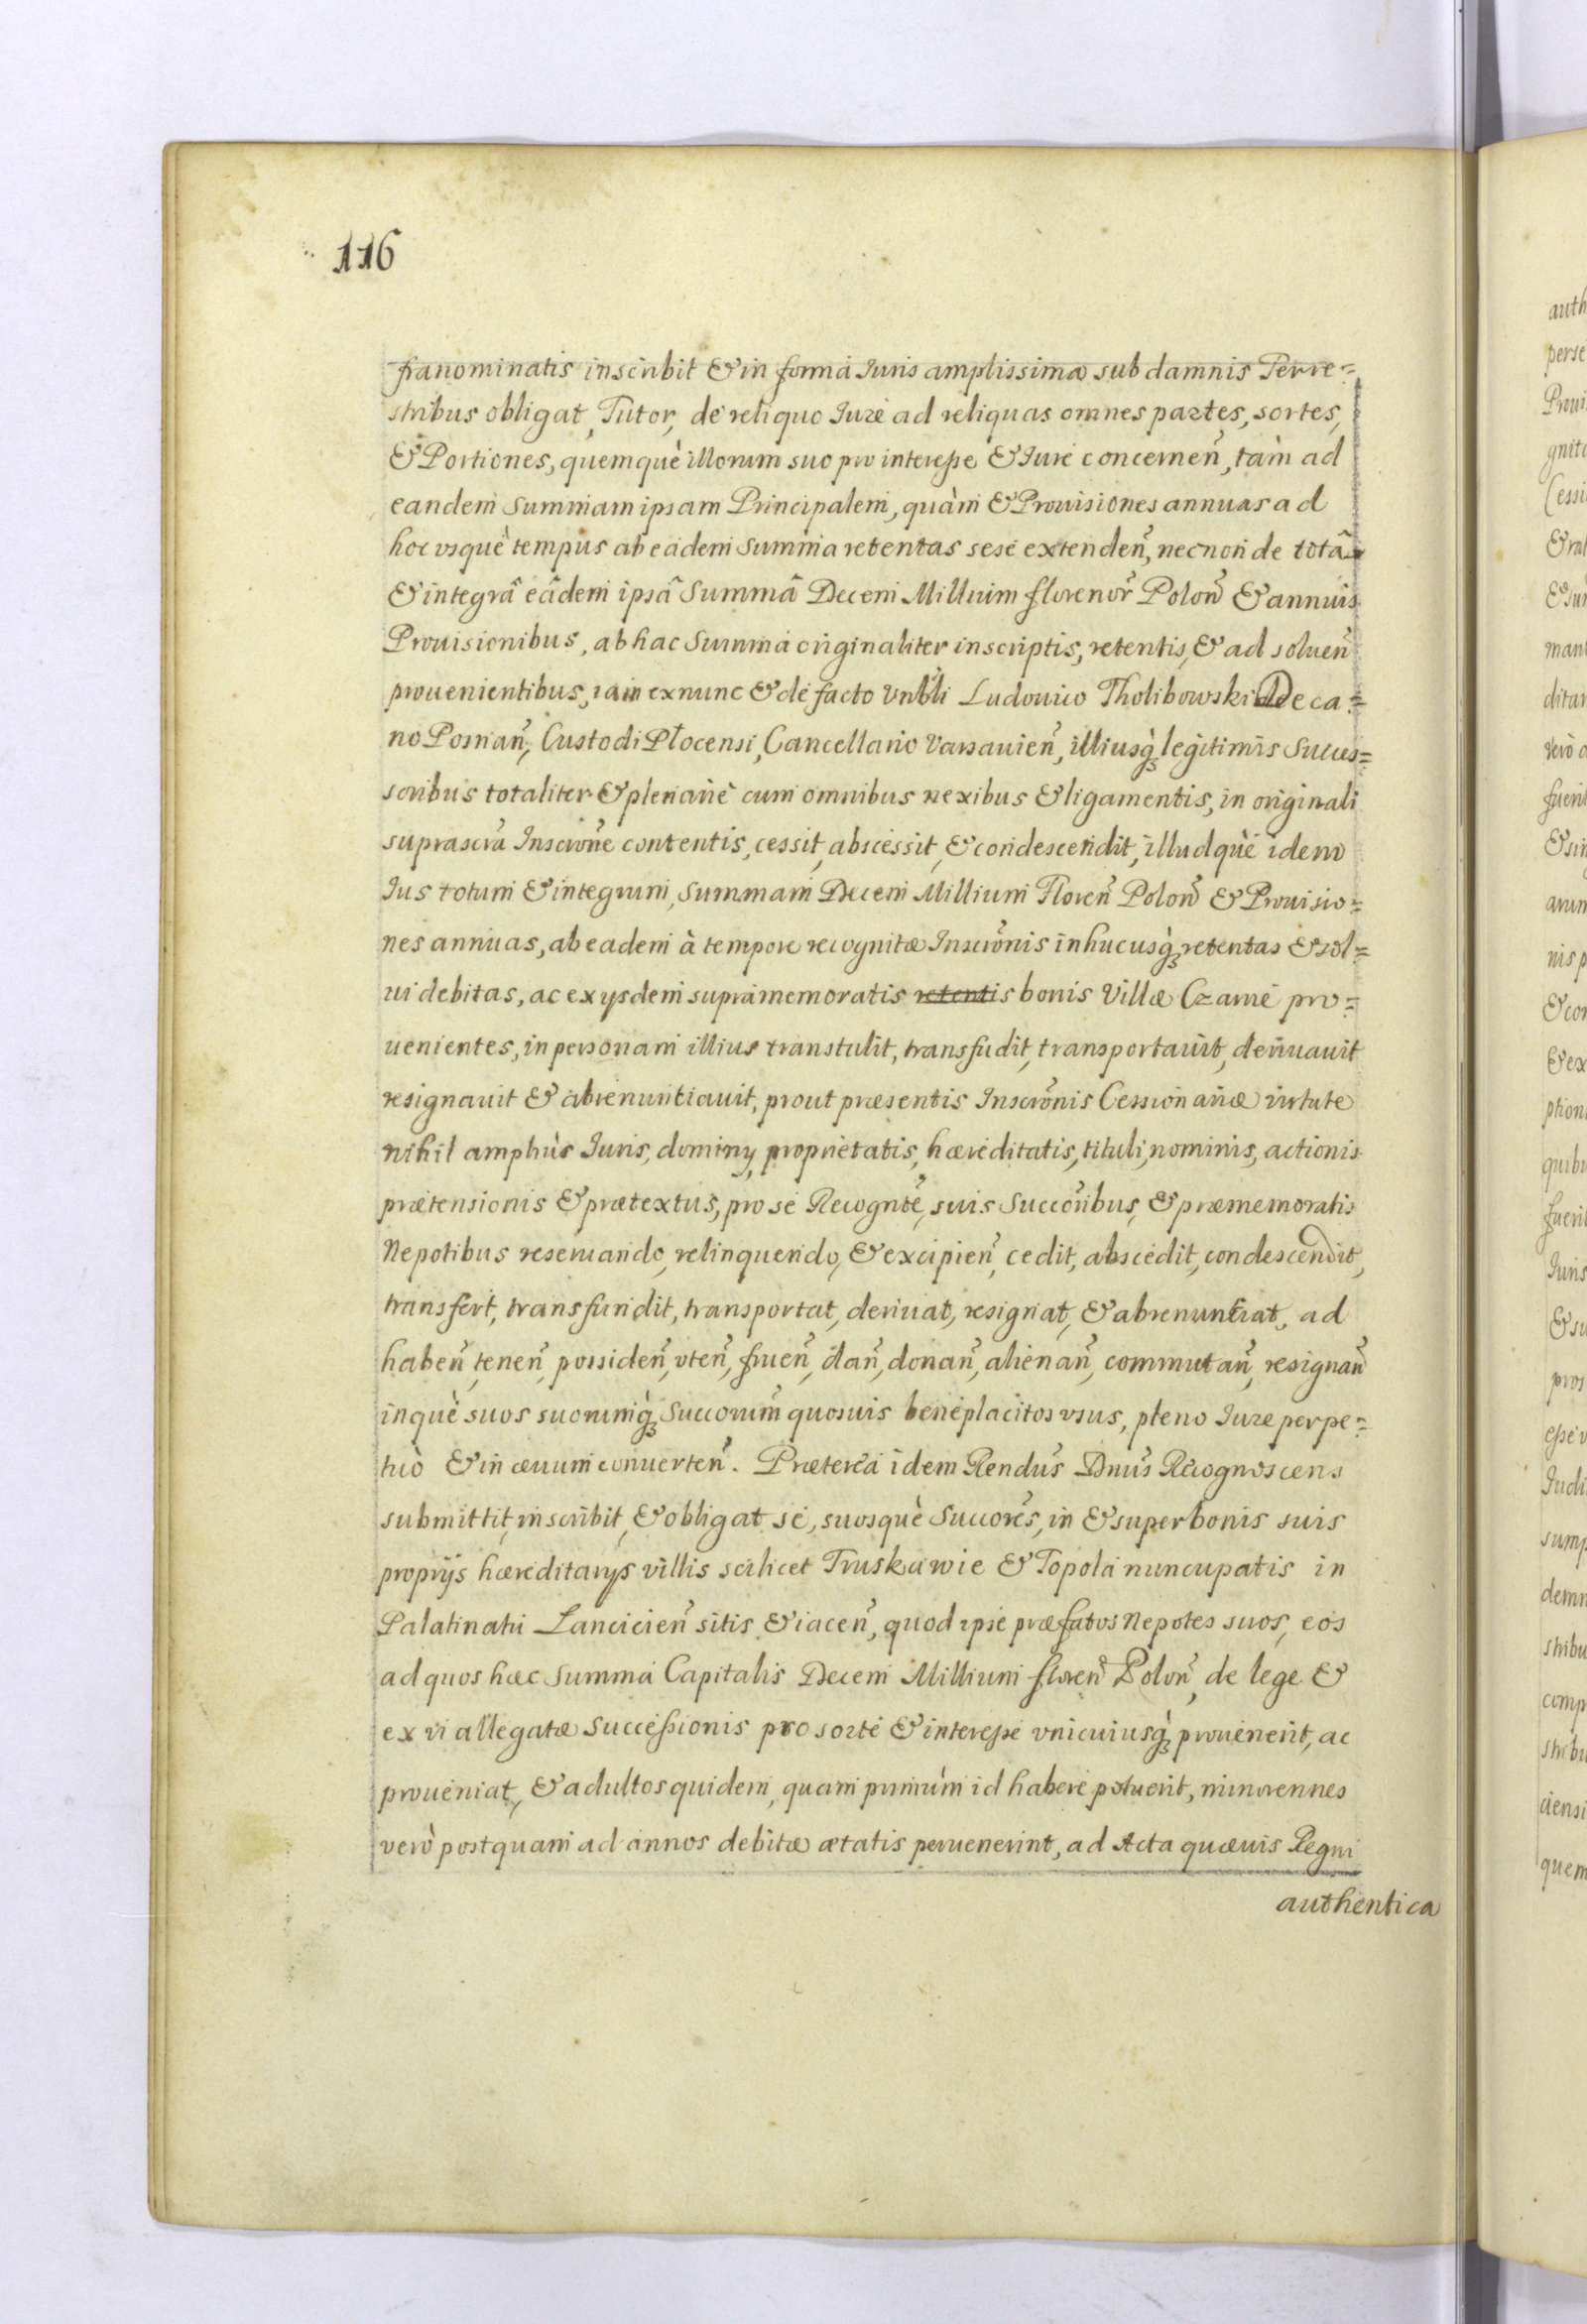 116
franominatis inscribit & in forma Iuris amplissima sub damnis Terre=
stribus obligat, Tutor, de reliquo Iure ad reliquas omnes partes, sortes,
& Portiones, quemquè illorum suo pro interesse & Iure concernen̄, tàm ad
eandem summam ipsam Principalem, quàm & Prouisiones annuas ad
hoc vsquè tempus ab eadem summa retentas sese extenden̄, necnon de totâ
& integrâ eâdem ipsâ Summâ Decem Millium florenor̄ Polon̄ & annuis
Prouisionibus, ab hac Summa originaliter inscriptis, retentis, & ad soluen̄
prouenientibus, iam exnunc & de facto Vnbli Ludouico Tholibowski Deca=
no Posnan̄, Custodi Płocensi, Cancellario Varsauien̄, illiusq̀ legitimis Succes=
soribus totaliter & plenariè cum omnibus nexibus & ligamentis, in originali
suprascra Inscrōne contentis, cessit, abscessit, & condescendit, illudquè idem
Ius totum & integrum, summam Decem Millium Floren̄ Polon̄ & Prouisio=
nes annuas, ab eadem à tempore recognitæ Inscrōnis inhucusq̀ retentas & sol=
ui debitas, ac ex ysdem supramemoratis retentis bonis Villæ Czarne pro=
uenientes, in personam illius transtulit, transfudit, transportauit, deriuauit
resignauit & abrenuntiauit, prout præsentis Inscrōnis Cessionariæ virtute
nihil ampliùs Iuris, dominy, proprietatis, hæreditatis, tituli, nominis, actionis
prætensionis & prætextus, pro se Recogntē, suis Succōribus, & præmemoratis
Nepotibus reseruando, relinquendo, & excipien̄, cedit, abscedit, condescendit,
transfert, transfundit, transportat, deriuat, resignat, & abrenuntiat, ad
haben̄, tenen̄, possiden̄, vten̄, fruen̄, dan̄, donan̄, alienan̄, commutan̄, resignan̄
inquè suos suorumq̀ Succorum̄ quosuis beneplacitos vsus, pleno Iure perpe=
tuò & in æuum conuerten̄. Præterea idem Rendus̄ Dnus̄ Recognoscens
submittit, inscribit, & obligat se, suosquè Succorēs, in & super bonis suis
proprijs hæreditarys villis scilicet Truskawie & Topola nuncupatis in
Palatinatu Lancicien̄ sitis & iacen̄, quod ipse præfatos Nepotes suos, eos
ad quos hæc summa Capitalis Decem Millium floren̄ Polon̄, de lege &
ex vi allegatæ successionis pro sorte & interesse vnicuiusq̀ prouenerit, ac
proueniat, & adultos quidem, quam primùm id habere potuerit, minorennes
verò postquam ad annos debitæ ætatis peruenerint, ad Acta quæuis Regni
authentica